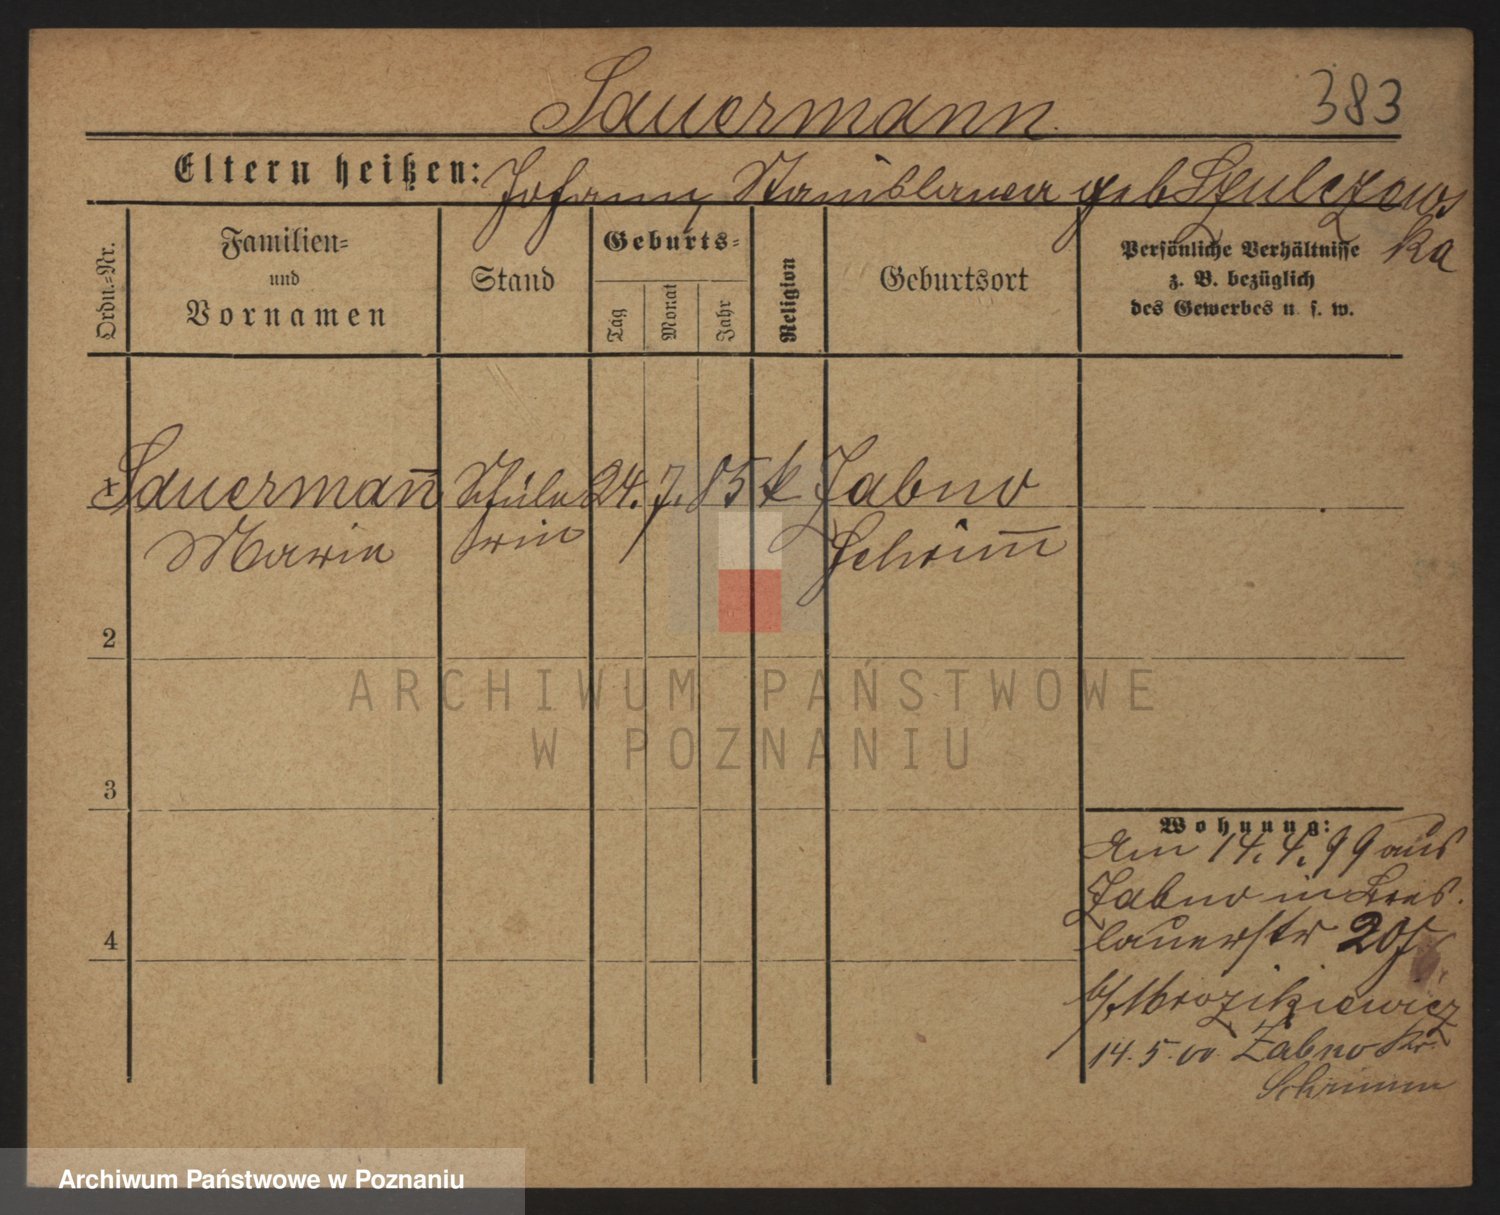 Sauermann 383
Eltern heißen: Johann Stanislawa geb Szulczews
ka
Ordn.-Nr.
Familien-
und
Vornamen
Stand
Geburts-
Tag
Monat
Jahr
Religion
Geburtsort
Persönliche Verhältnisse
z. B. bezüglich
des Gewerbes u. s. w.
1 Sauermann̄ Schüle 24. 7. 85 k Zabno
Marie rin Schrim̄
2
3
4
Wohnung:
Am 14. 4. 99 aus
Zabno in Bres
lauerstr 20
b/ Mrozikiewicz
14. 5. 00 Zabno Kr.
Schrimm
ARCHIWUM PAŃSTWOWE
W POZNANIU
Archiwum Państwowe w Poznaniu